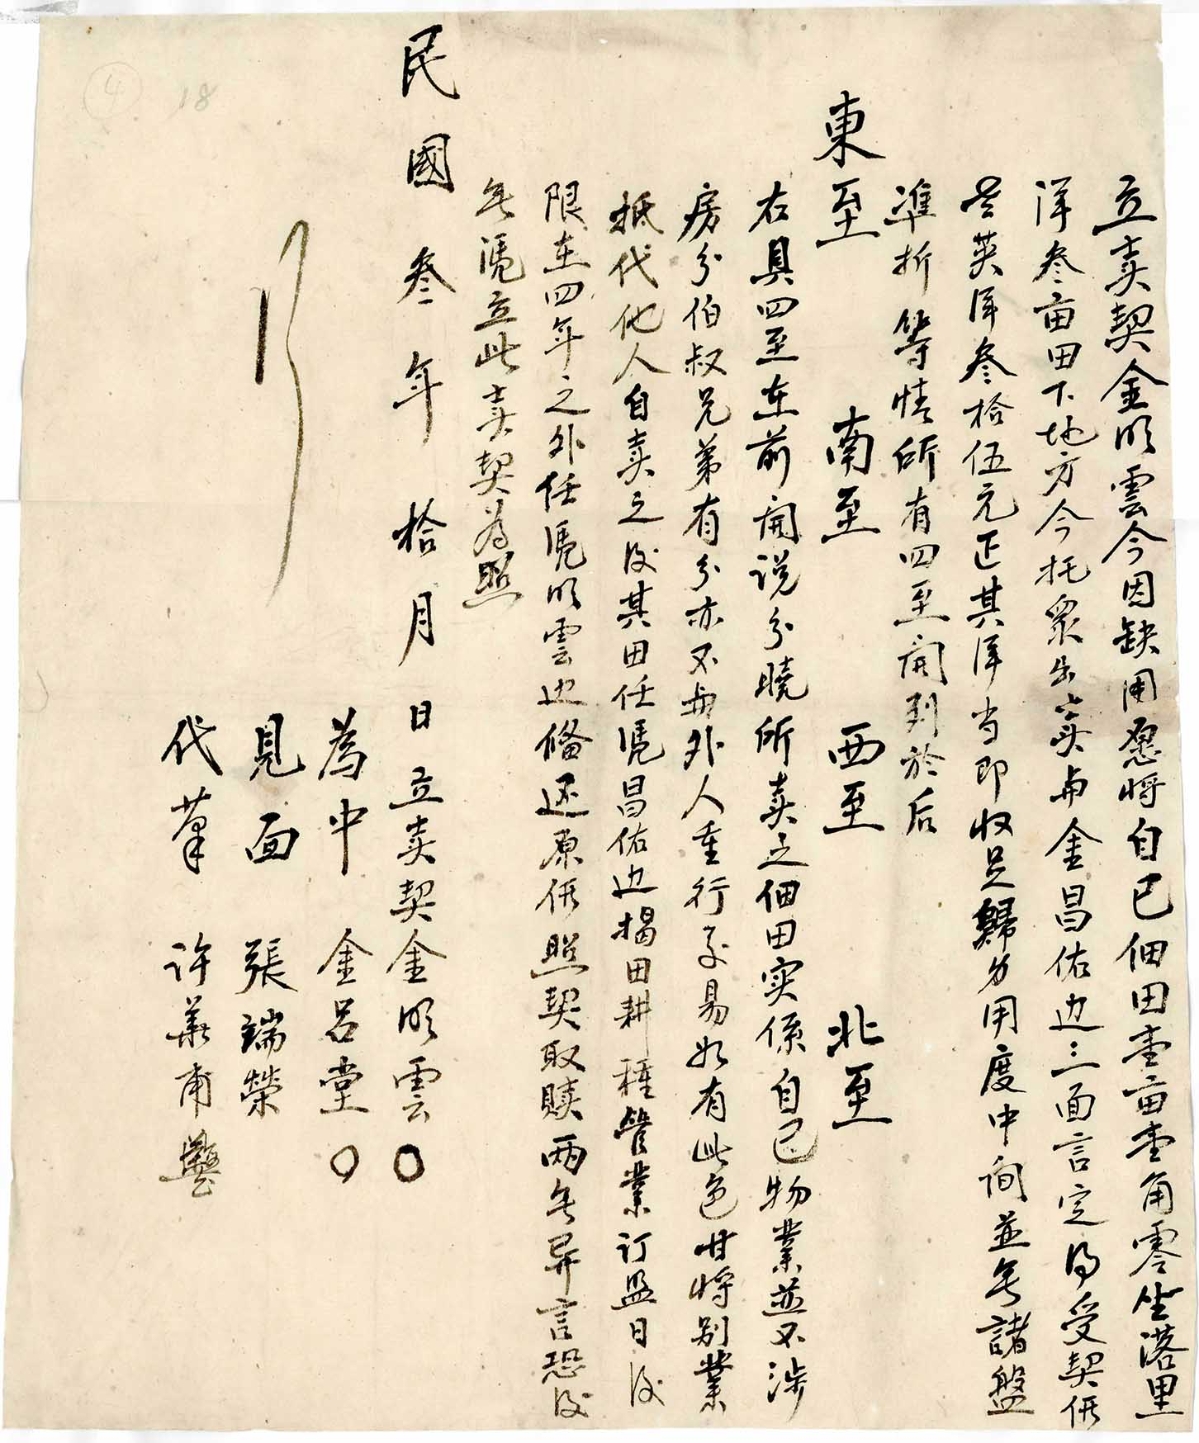 立卖契金明雲今因缺用愿將自己佃田壹亩壹角零坐落里
洋叁亩田下地方今托眾出卖與金昌佑边三面言定得受契価
英洋叁拾伍元正其洋当即收足歸身用度中间並無諸盤
準折等情所有四至開列於后
東至 南至 西至 北至
右具四至在前開说分曉所卖之佃田实係自己物業並不涉
房分伯叔兄弟有分亦不與外人重行交易如有此色甘將别業
抵代他人自卖之後其田任凴昌佑边揭田耕種管業訂盈日後
限在四年之外任凴明雲边俻还原価照契取赎两無异言恐後
無凴立此卖契為照
民國叁年拾月 日立卖契金明雲〇
為中 金吕堂〇
見面 張瑞榮
代筆 许華甫
4 18